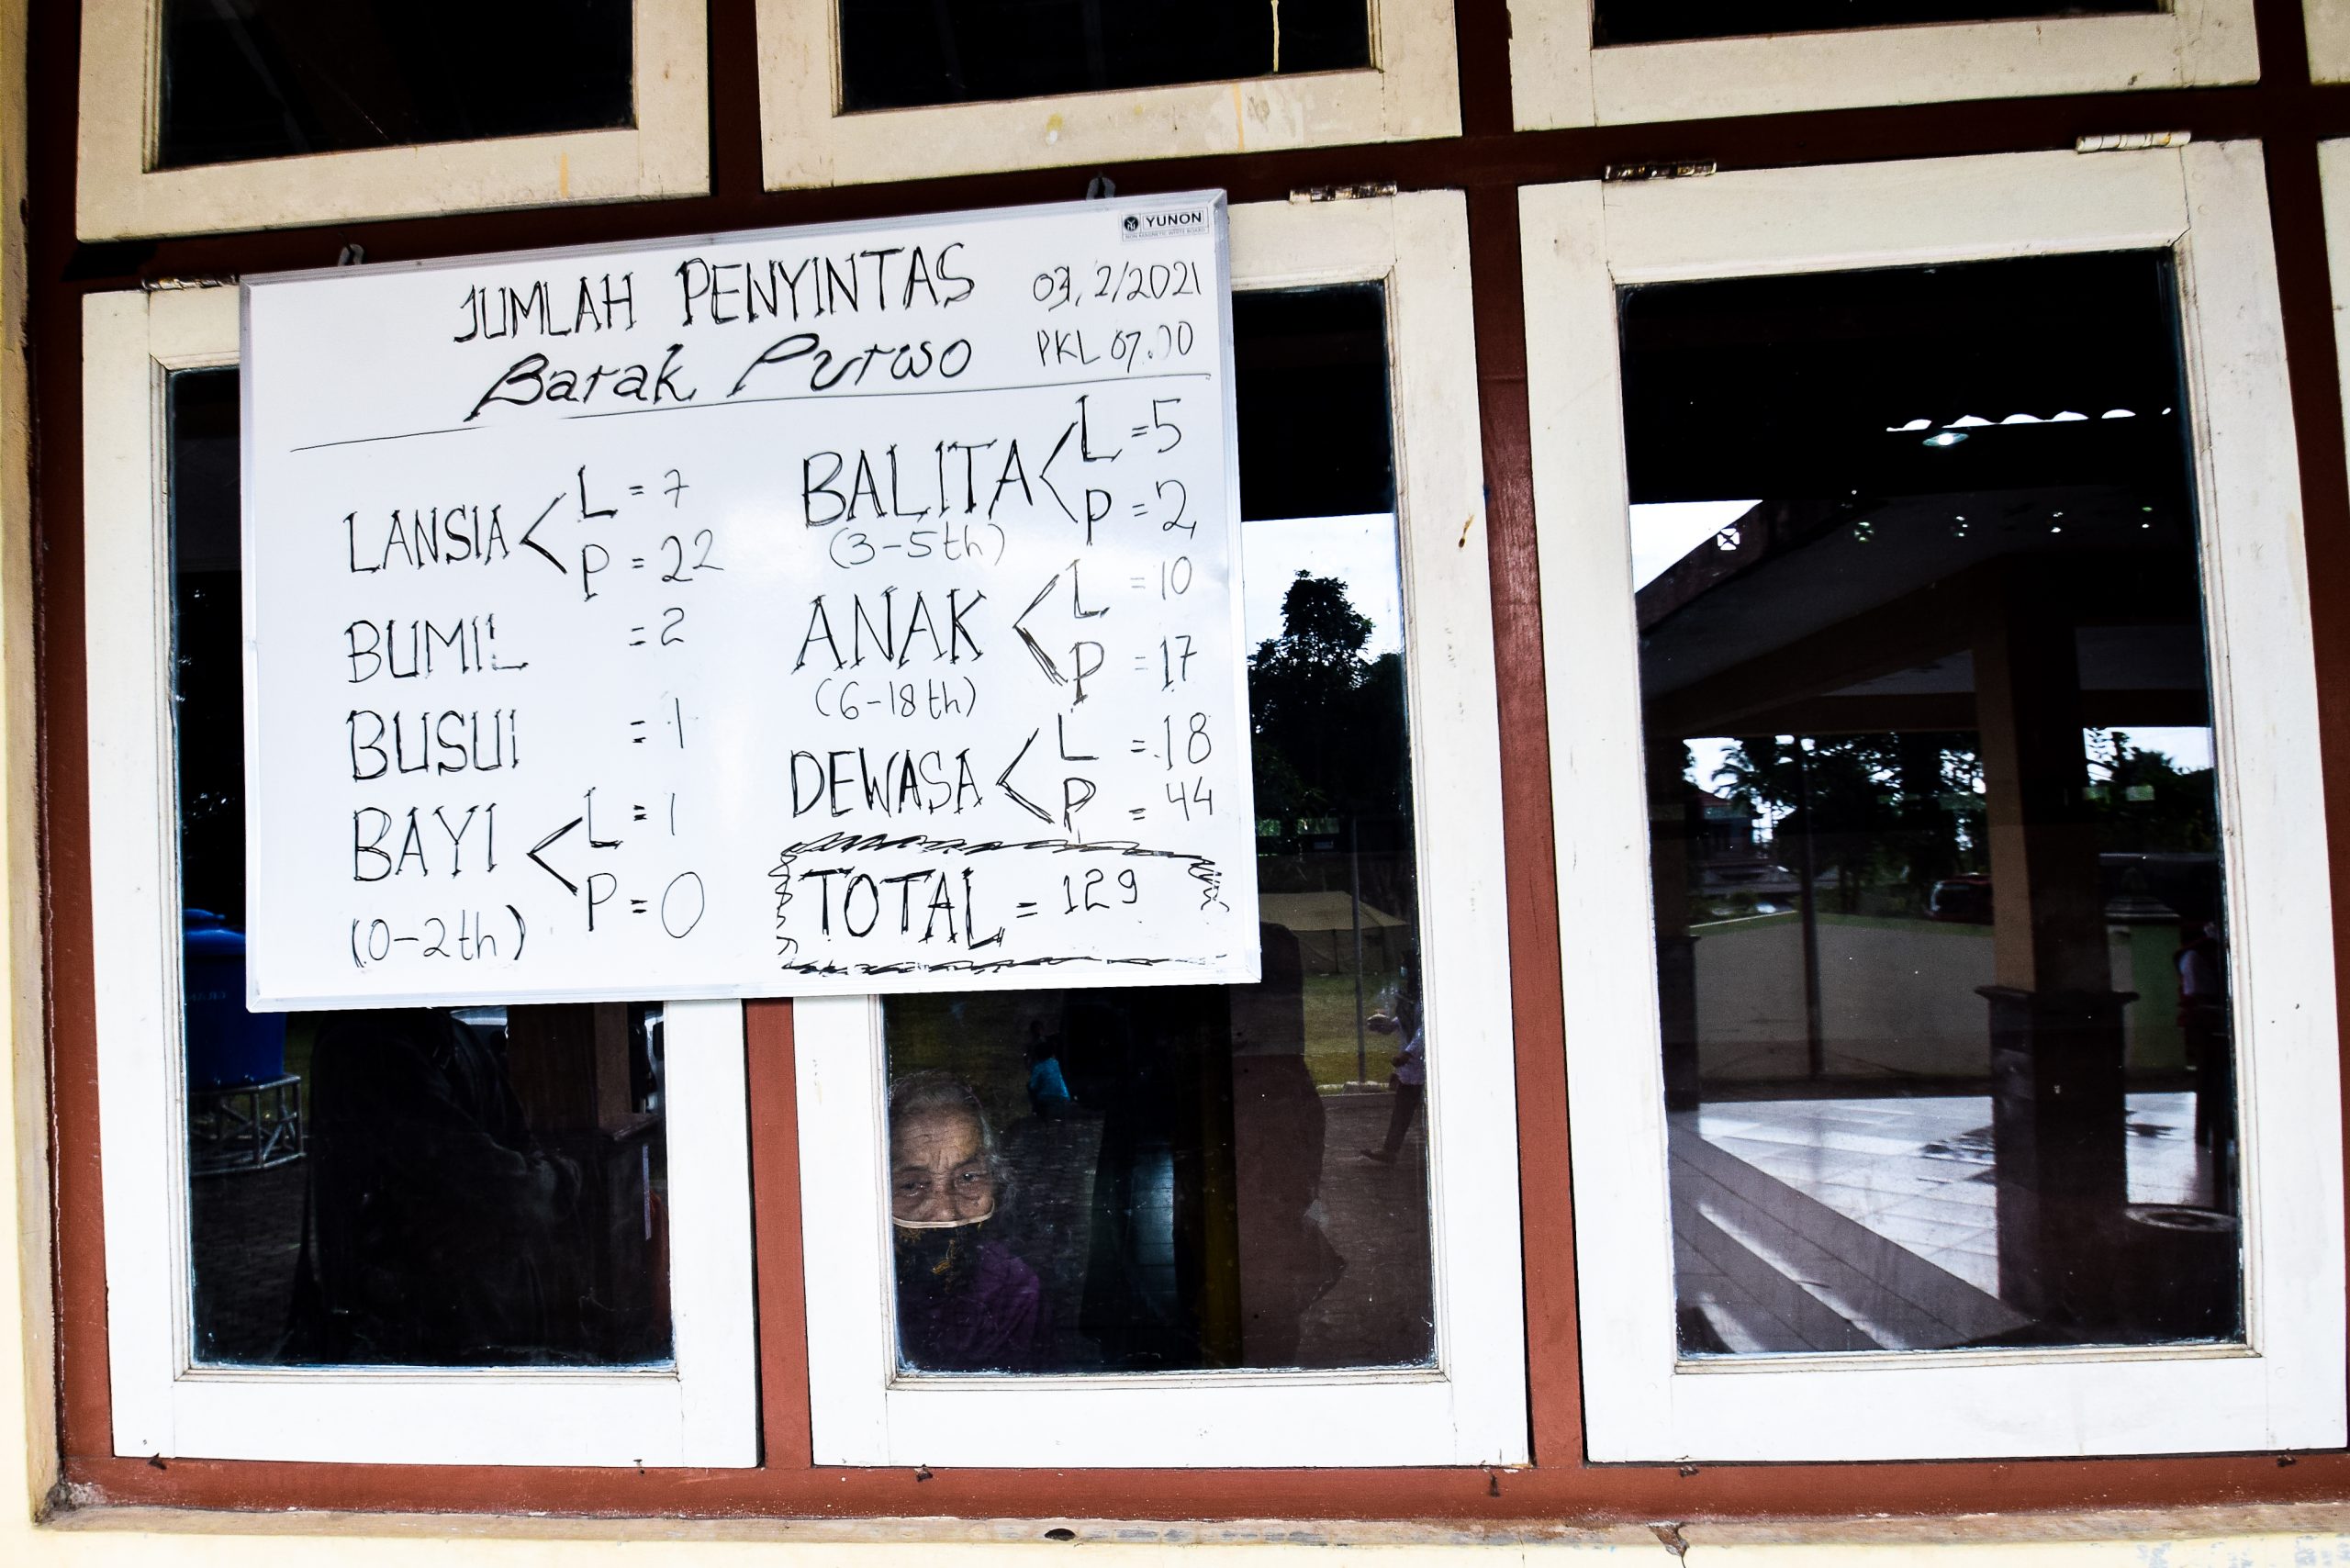 YUNON
JUMLAH PENYINTAS
Barak Purwo
03, 2/2021
PKL 07.00
LANSIA < L = 7
P = 22
BUMIL = 2
BUSUI = 1
BAYI < L = 1
P = 0
(0-2th)
BALITA < L = 5
P = 2
(3-5th)
ANAK < L = 10
P = 17
(6-18th)
DEWASA < L = 18
P = 44
TOTAL = 129